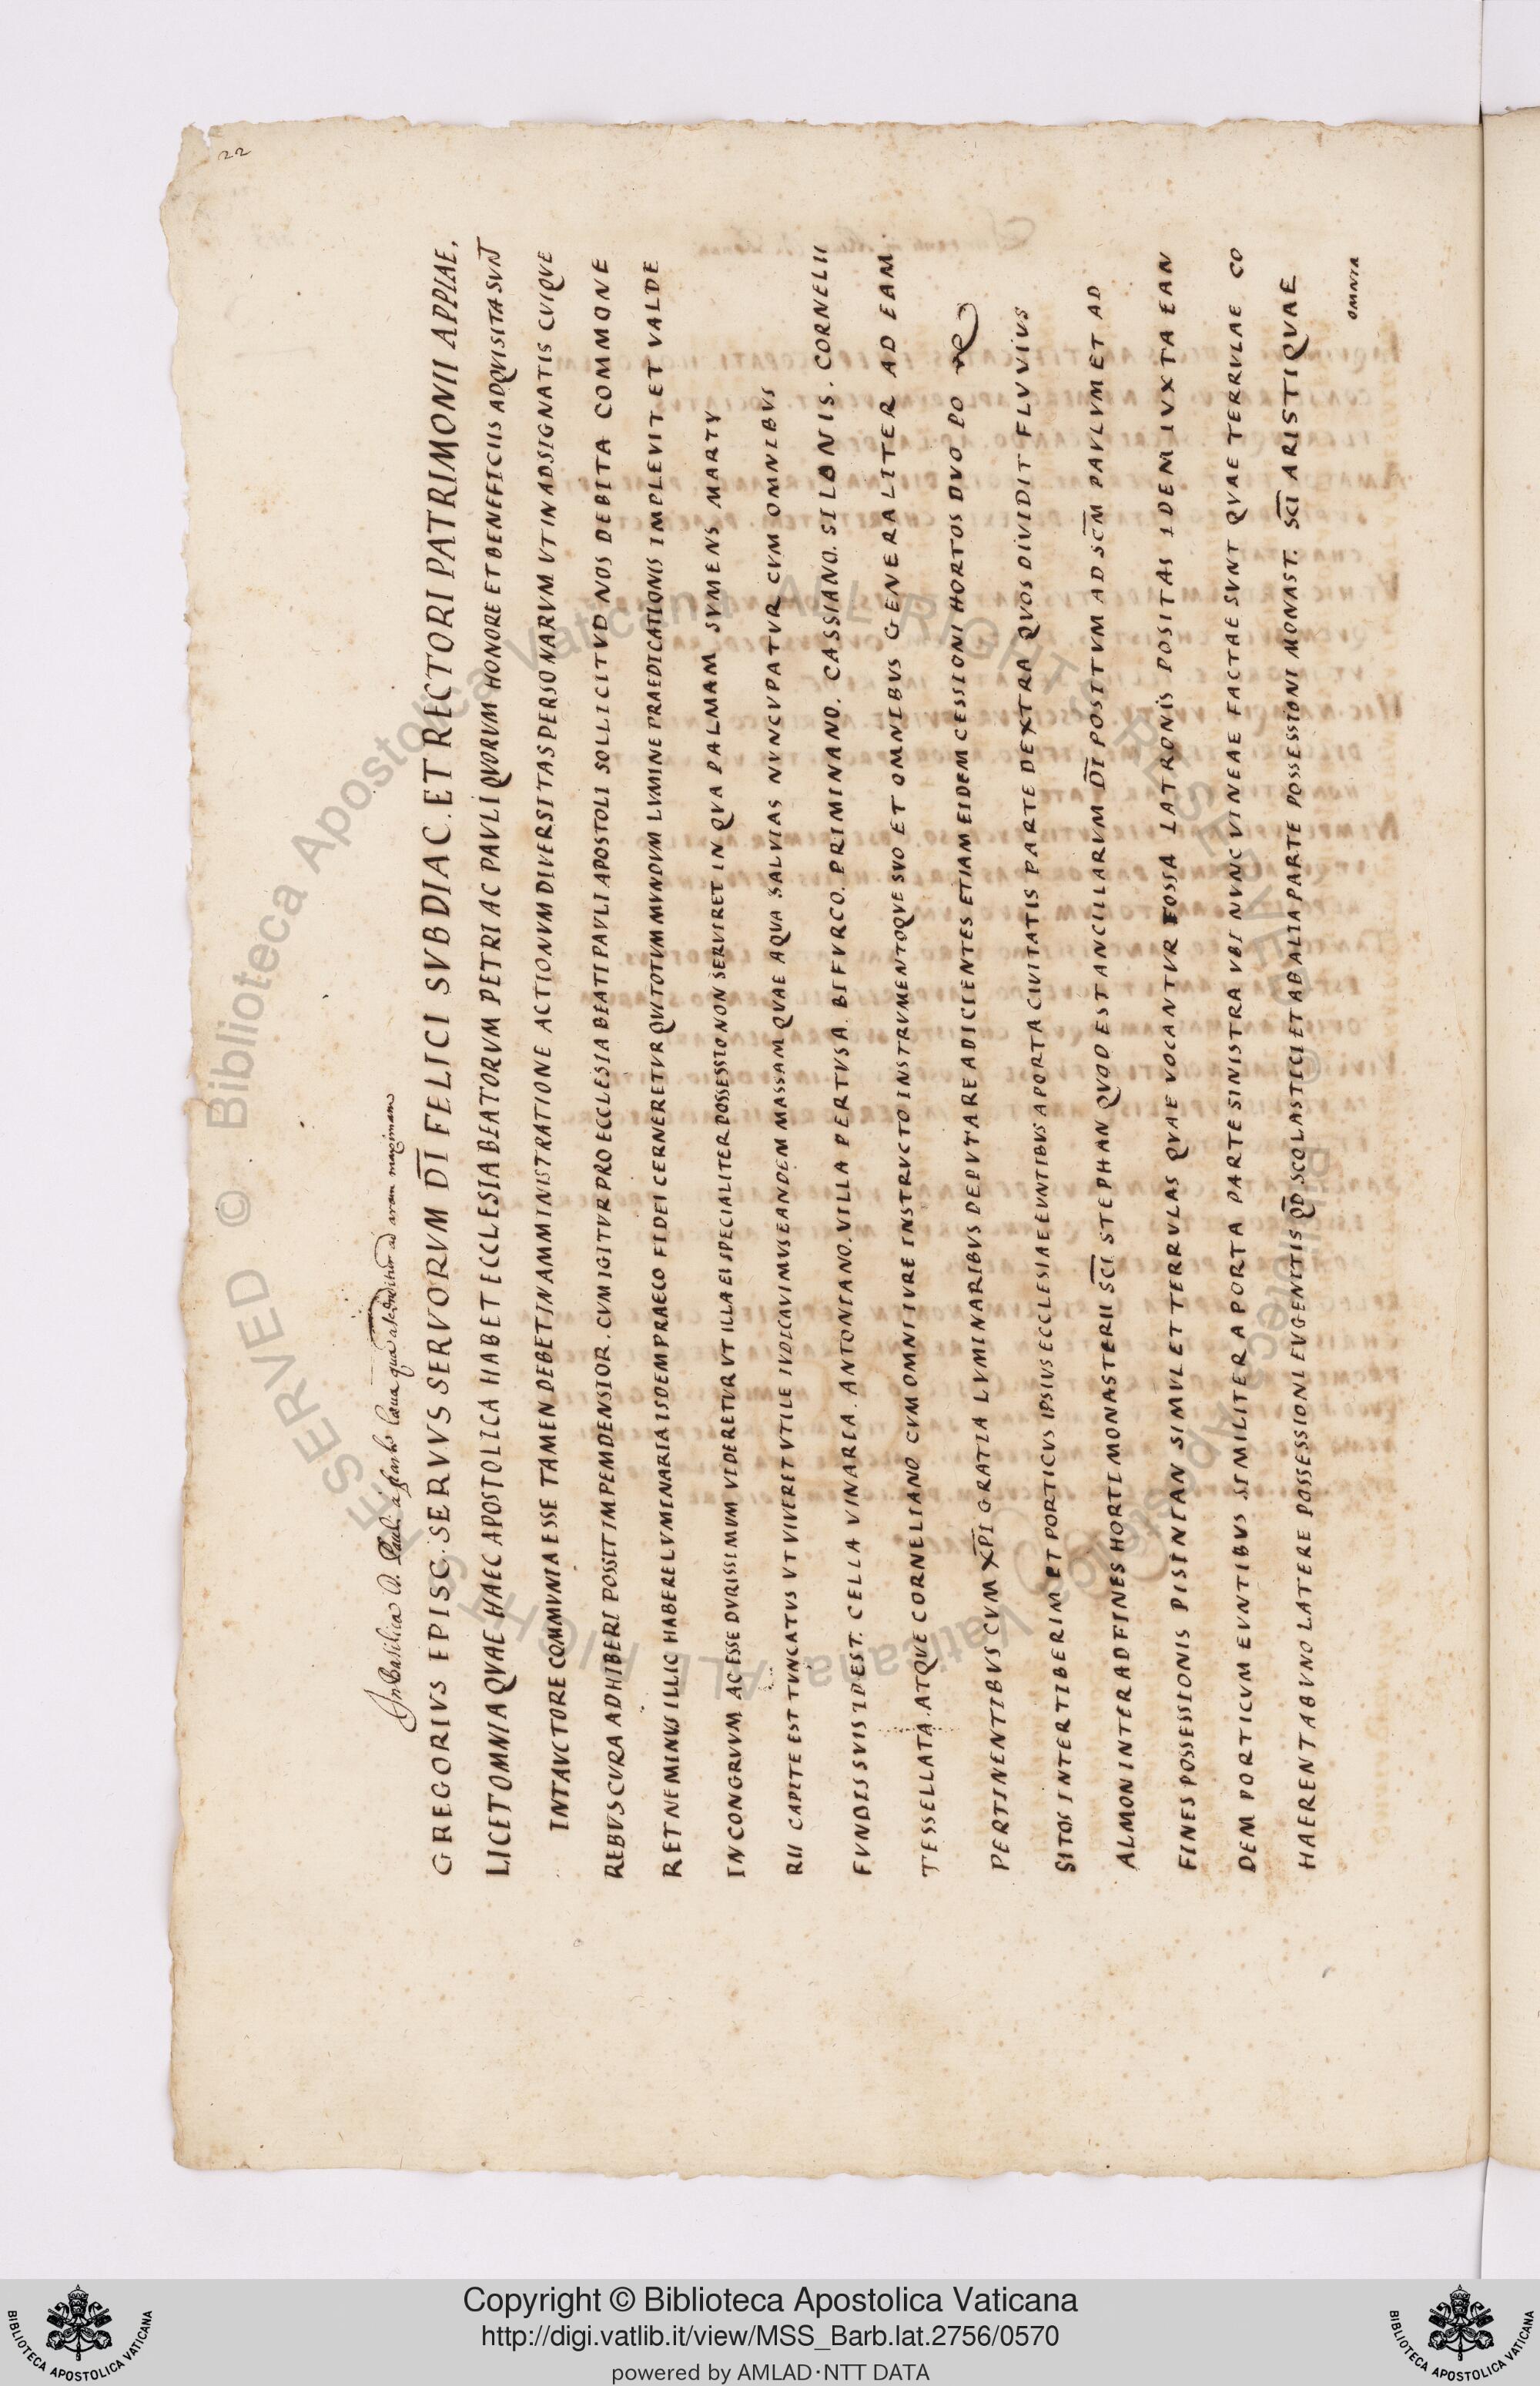 22
In Basilica D. Pauli a parte laeua qua ascenditur ad aram maximam
GREGORIVS EPISC. SERVVS SERVORVM D̅I̅ FELICI SVBDIAC. ET RECTORI PATRIMONII APPIAE.
LICET OMNIA QVAE HAEC APOSTOLICA HABET ECCLESIA BEATORVM PETRI AC PAVLI QVORVM HONORE ET BENEFICIIS ADQVISITA SVNT
INT AVCTORE COMMVNIA ESSE TAMEN DEBET IN AMMINISTRATIONE ACTIONVM DIVERSITAS PERSONARVM VT IN ADSIGNATIS CVIQVE
REBVS CVRA ADHIBERI POSSIT IMPEMDENSIOR. CVM IGITVR PRO ECCLESIA BEATI PAVLI APOSTOLI SOLLICITVD NOS DEBITA COMMONE
RET NE MINVS ILLIC HABERE LVMINARIA ISDEM PRAECO FIDEI CERNERETVR QVI TOTVM MVNDVM LVMINE PRAEDICATIONIS IMPLEVIT ET VALDE
INCONGRVVM AC ESSE DVRISSIMVM VIDERETVR VT ILLA EI SPECIALITER POSSESSIO NON SERVIRET IN QVA PALMAM SVMENS MARTY
RII CAPITE EST TVNCATVS VT VIVERET VTILE IVDICAVIMVS EANDEM MASSAM QVAE AQVA SALVIAS NVNCVPATVR CVM OMNIBVS
FVNDIS SVIS ID EST. CELLA VINARIA. ANTONIANO. VILLA PERTVSA. BIFVRCO. PRIMINANO. CASSIANO. SILONIS. CORNELII
TESSELLATA. ATQVE CORNELIANO CVM OMNI IVRE INSTRVCTO INSTRVMENTOQVE SVO ET OMNIBVS GENERALITER AD EAM
PERTINENTIBVS CVM X̅P̅I̅ GRATIA LVMINARIBVS DEPVTARE ADICIENTES ETIAM EIDEM CESSIONI HORTOS DVO PO
SITOS INTER TIBERIM ET PORTICVS IPSIVS ECCLESIAE EVNTIBVS A PORTA CIVITATIS PARTE DEXTRA QVOS DIVIDIT FLVVIVS
ALMON INTER ADFINES HORTI MONASTERII S̅C̅I̅ STEPHAN QVOD EST ANCILLARVM D̅I̅ POSITVM AD S̅C̅M̅ PAVLVM ET AD
FINES POSSESSIONIS PISINIAN SIMVL ET TERRVLAS QVAE VOCANTVR FOSSA LATRONIS POSITAS IDEM IVXTA EAN
DEM PORTICVM EVNTIBVS SIMILITER A PORTA PARTE SINISTRA VBI NVNC VINEAE FACTAE SVNT QVAE TERRVLAE CO
HAERENT AB VNO LATERE POSSESSIONI EVGENITIS Q̅D̅ SCOLASTICI ET AB ALIA PARTE POSSESSIONI MONAST. S̅C̅I̅ ARISTI QVAE
OMNIA
Copyright © Biblioteca Apostolica Vaticana
http://digi.vatlib.it/view/MSS_Barb.lat.2756/0570
powered by AMLAD·NTT DATA